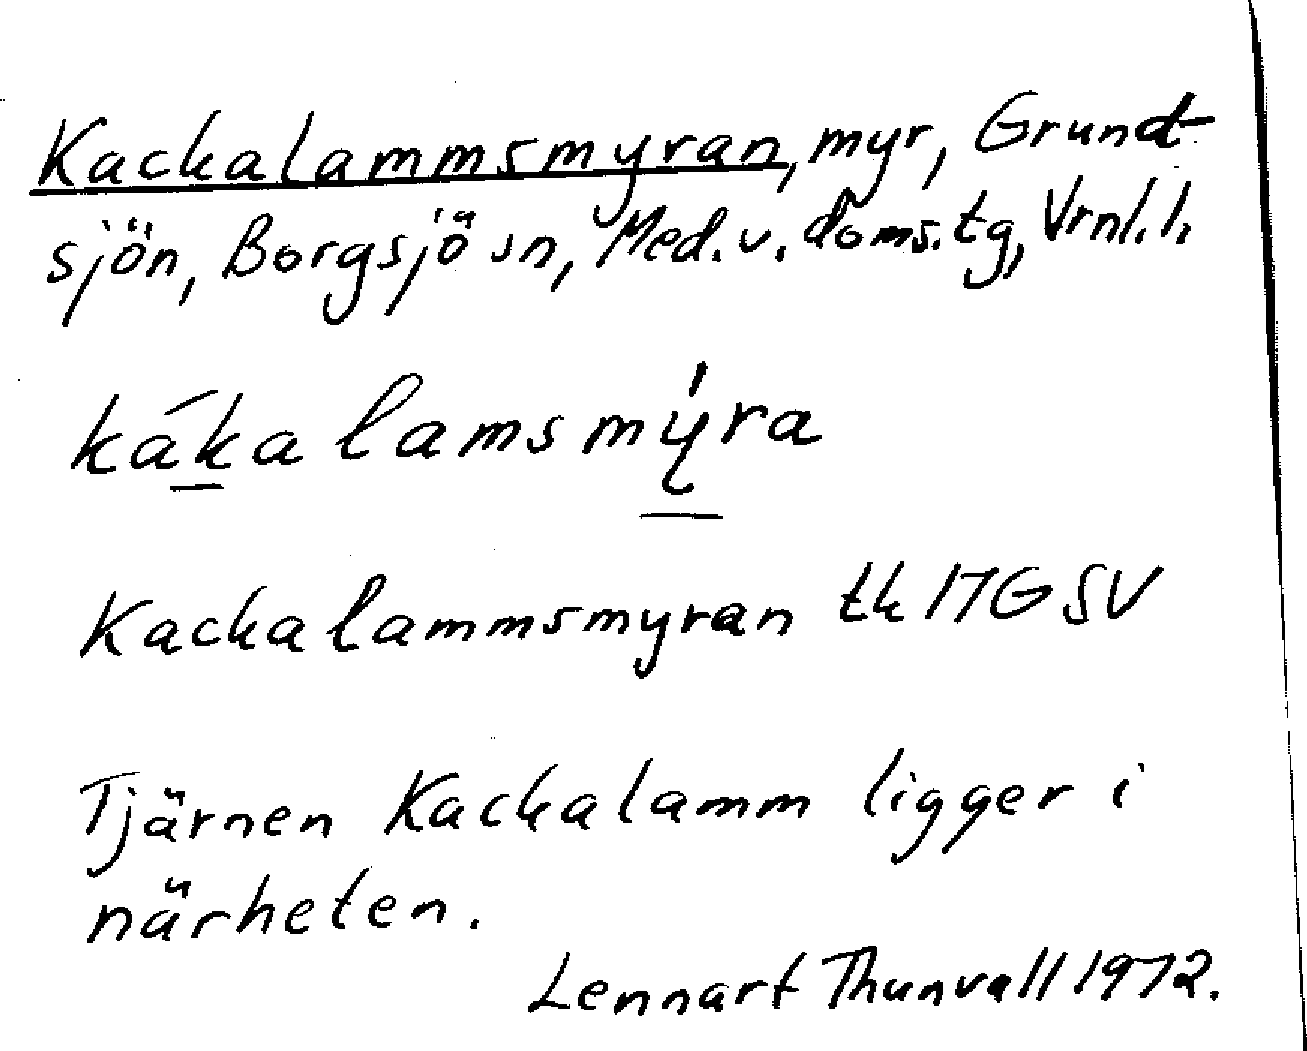 Kackalammsmyran, myr, Grund-
sjön, Borgsjö sn, Med. v. doms. tg, Vrnl. l.
kákalamsmýra
Kackalammsmyran tk 17G SV
Tjärnen Kackalamm ligger i
närheten.
Lennart Thunvall 1972.